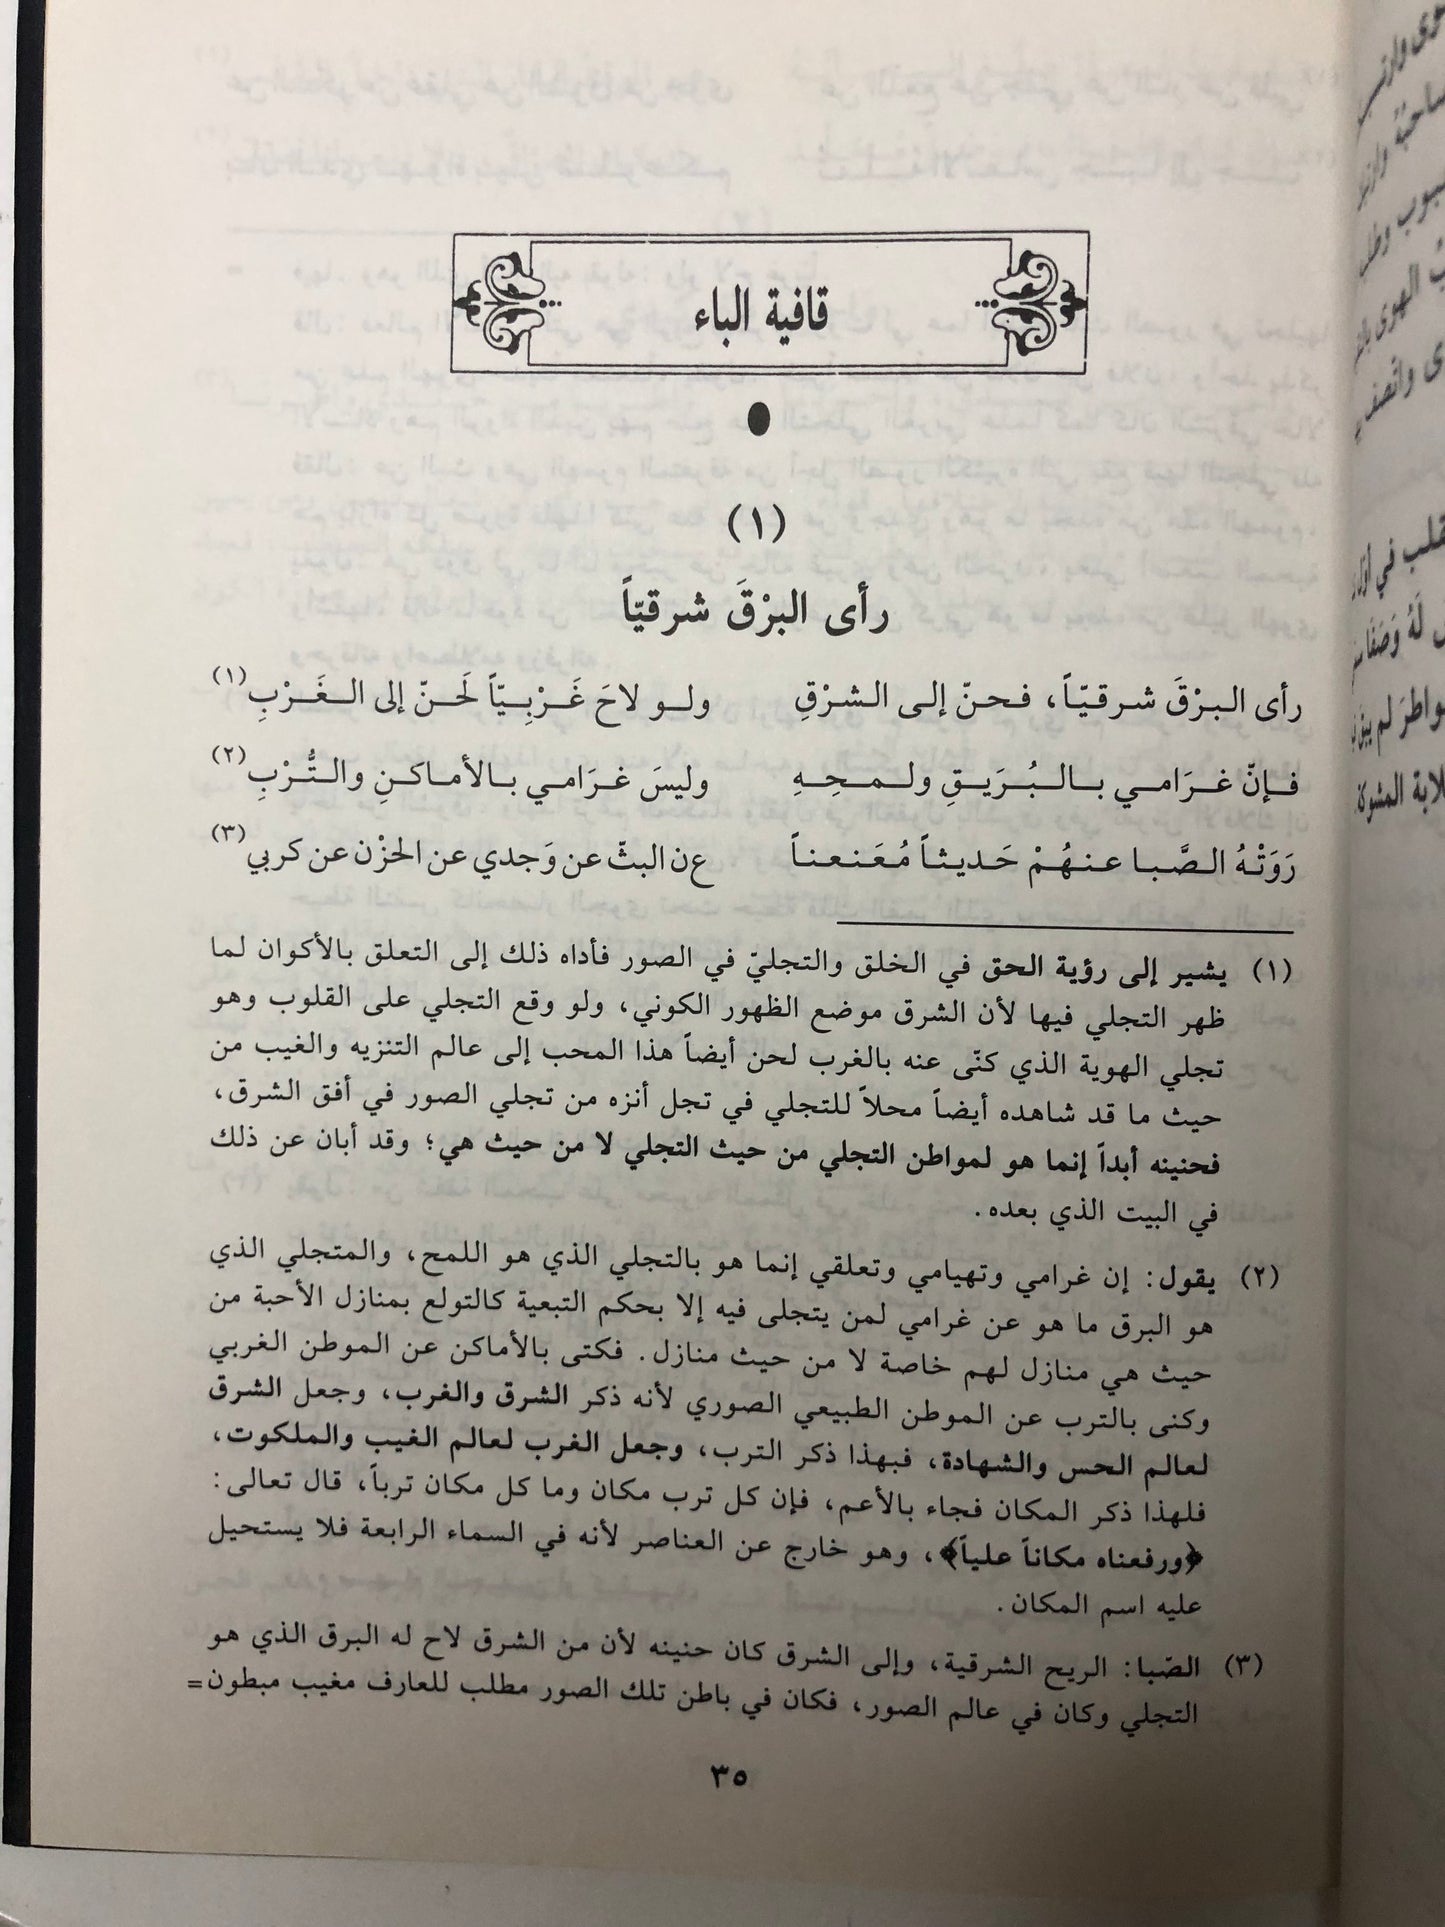 قافية الباء
(١)
رأى البرْقَ شرقيّاً
رأى البرْقَ شرقيّاً، فحنّ إلى الشرْقِ ولو لاحَ غَرْبِيّاً لَحنّ إلى الغَرْبِ(١)
فإنّ غرَامي بالبُرَيقِ ولمحِهِ وليسَ غرَامي بالأماكنِ والتُّرْبِ(٢)
رَوَتْهُ الصَّبا عنهُمْ حَديثاً مُعَنعناً عن البثّ عن وَجدي عن الحزْن عن كربي(٣)
(١) يشير إلى رؤية الحق في الخلق والتجليّ في الصور فأداه ذلك إلى التعلق بالأكوان لما
ظهر التجلي فيها لأن الشرق موضع الظهور الكوني، ولو وقع التجلي على القلوب وهو
تجلي الهوية الذي كنّى عنه بالغرب لحن أيضاً هذا المحب إلى عالم التنزيه والغيب من
حيث ما قد شاهده أيضاً محلاً للتجلي في تجل أنزه من تجلي الصور في أفق الشرق،
فحنينه أبداً إنما هو لمواطن التجلي من حيث التجلي لا من حيث هي؛ وقد أبان عن ذلك
في البيت الذي بعده.
(٢) يقول: إن غرامي وتهيامي وتعلقي إنما هو بالتجلي الذي هو اللمح، والمتجلي الذي
هو البرق ما هو عن غرامي لمن يتجلى فيه إلا بحكم التبعية كالتولع بمنازل الأحبة من
حيث هي منازل لهم خاصة لا من حيث منازل. فكنى بالأماكن عن الموطن الغربي
وكنى بالترب عن الموطن الطبيعي الصوري لأنه ذكر الشرق والغرب، وجعل الشرق
لعالم الحس والشهادة، فبهذا ذكر الترب، وجعل الغرب لعالم الغيب والملكوت،
فلهذا ذكر المكان فجاء بالأعم، فإن كل ترب مكان وما كل مكان ترباً، قال تعالى:
﴿ورفعناه مكاناً علياً﴾، وهو خارج عن العناصر لأنه في السماء الرابعة فلا يستحيل
عليه اسم المكان.
(٣) الصّبا: الريح الشرقية، وإلى الشرق كان حنينه لأن من الشرق لاح له البرق الذي هو
التجلي وكان في عالم الصور، فكان في باطن تلك الصور مطلب للعارف مغيب مبطون=
٣٥